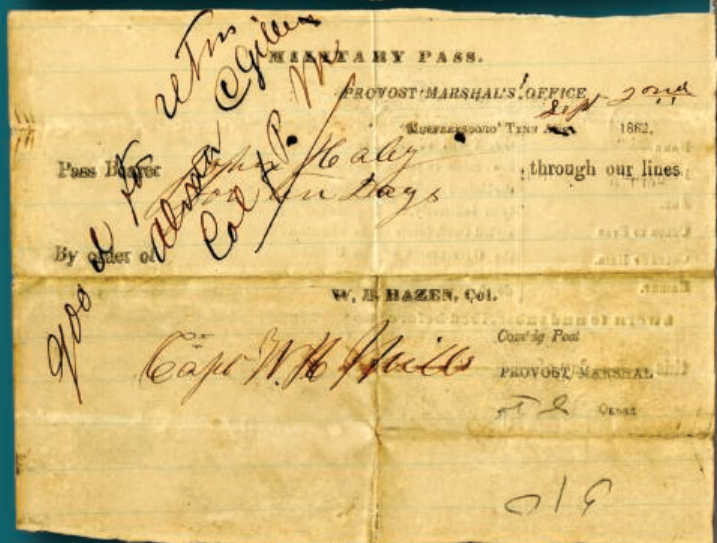 MILITARY PASS.
PROVOST MARSHAL'S OFFICE
Sept 2ond
MURFREESBORO' TENN 1862,
Pass Bearer Haley through our lines.
for ten Days
By order of
W. B. HAZEN, Col.
Com'dg Post
Capt W. H. Mills PROVOST MARSHAL
good for return
Alvan C Gillem
Col & P. M